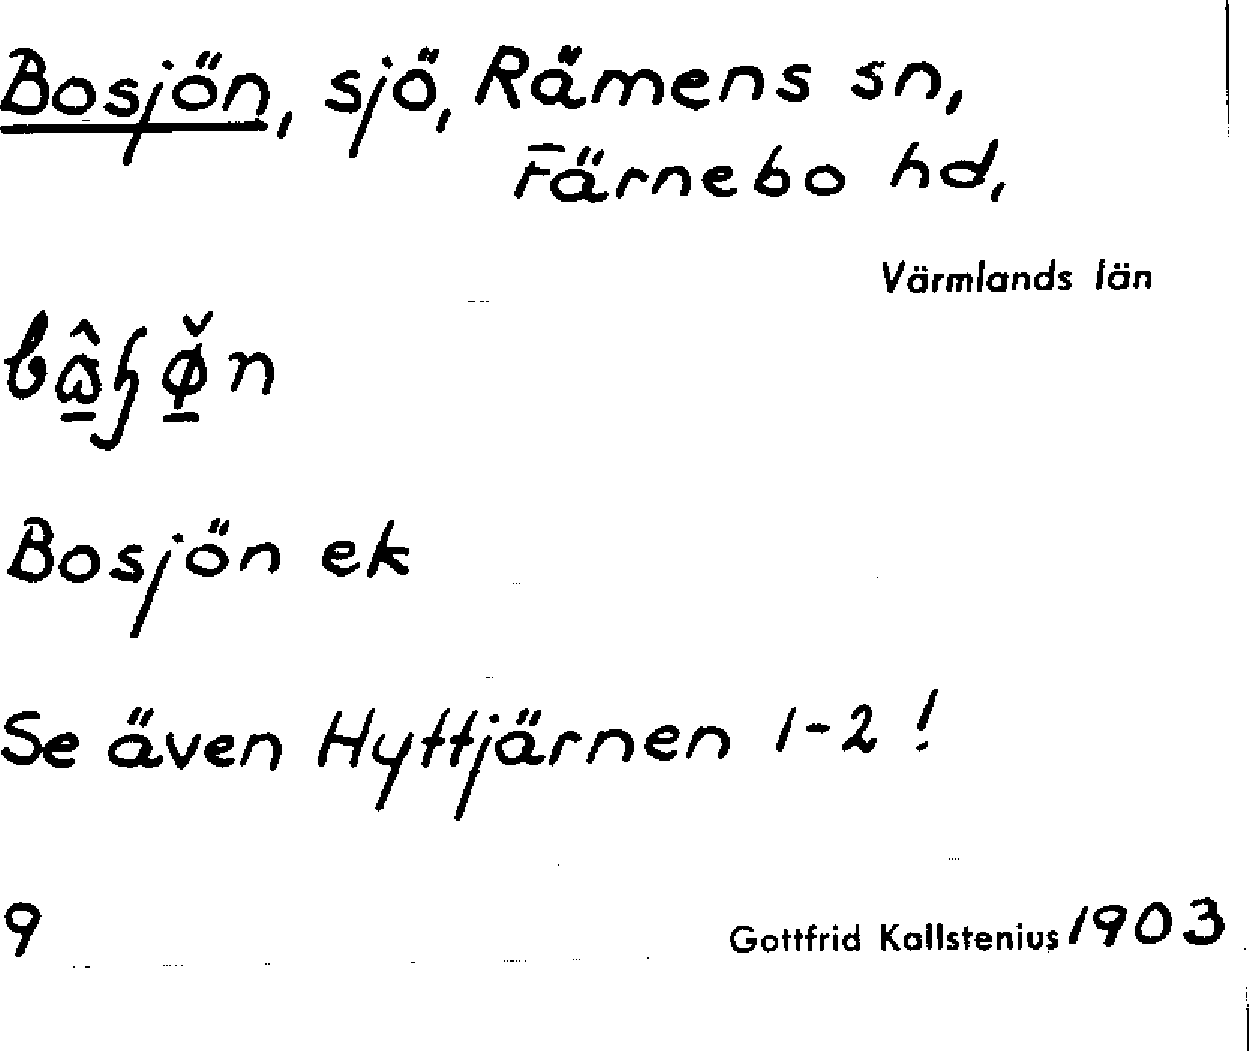 Bosjön, sjö, Rämens sn,
Färnebo hd,
Värmlands län
Bosjön ek
Se även Hyttjärnen 1-2!
9
Gottfrid Kallstenius 1903